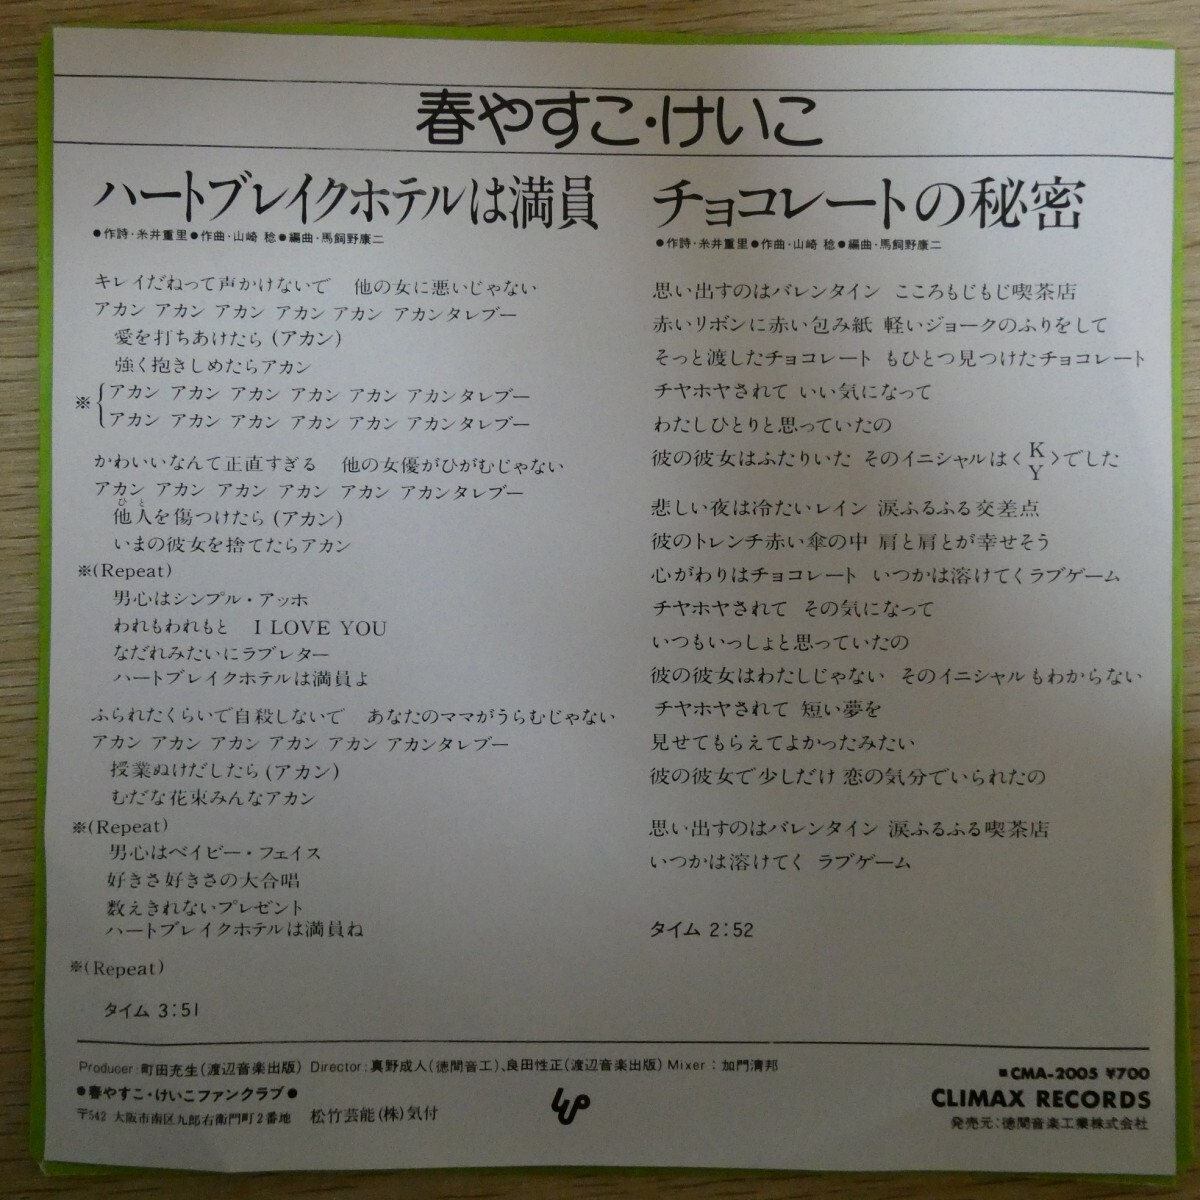 春やすこ・けいこ
ハートブレイクホテルは満員
●作詩・糸井重里●作曲・山崎 稔●編曲・馬飼野康二
キレイだねって声かけないで 他の女に悪いじゃない
アカン アカン アカン アカン アカン アカンタレブー
愛を打ちあけたら(アカン)
強く抱きしめたらアカン
※{アカン アカン アカン アカン アカン アカンタレブー
アカン アカン アカン アカン アカン アカンタレブー
かわいいなんて正直すぎる 他の女優がひがむじゃない
アカン アカン アカン アカン アカン アカンタレブー
ひと
他人を傷つけたら(アカン)
いまの彼女を捨てたらアカン
※(Repeat)
男心はシンプル・アッホ
われもわれもと I LOVE YOU
なだれみたいにラブレター
ハートブレイクホテルは満員よ
ふられたくらいで自殺しないで あなたのママがうらむじゃない
アカン アカン アカン アカン アカン アカンタレブー
授業ぬけだしたら(アカン)
むだな花束みんなアカン
※(Repeat)
男心はベイビー・フェイス
好きさ好きさの大合唱
数えきれないプレゼント
ハートブレイクホテルは満員ね
※(Repeat)
タイム 3:51
チョコレートの秘密
●作詩・糸井重里●作曲・山崎 稔●編曲・馬飼野康二
思い出すのはバレンタイン こころもじもじ喫茶店
赤いリボンに赤い包み紙 軽いジョークのふりをして
そっと渡したチョコレート もひとつ見つけたチョコレート
チヤホヤされて いい気になって
わたしひとりと思っていたの
彼の彼女はふたりいた そのイニシャルは〈K Y〉でした
悲しい夜は冷たいレイン 涙ふるふる交差点
彼のトレンチ赤い傘の中 肩と肩とが幸せそう
心がわりはチョコレート いつかは溶けてくラブゲーム
チヤホヤされて その気になって
いつもいっしょと思っていたの
彼の彼女はわたしじゃない そのイニシャルもわからない
チヤホヤされて 短い夢を
見せてもらえてよかったみたい
彼の彼女で少しだけ 恋の気分でいられたの
思い出すのはバレンタイン 涙ふるふる喫茶店
いつかは溶けてく ラブゲーム
タイム 2:52
Producer:町田充生(渡辺音楽出版) Director:真野成人(徳間音工)、良田性正(渡辺音楽出版) Mixer:加門清邦
●春やすこ・けいこファンクラブ●
〒542 大阪市南区九郎右衛門町2番地 松竹芸能(株)気付
■CMA-2005 ¥700
CLIMAX RECORDS
発売元:徳間音楽工業株式会社